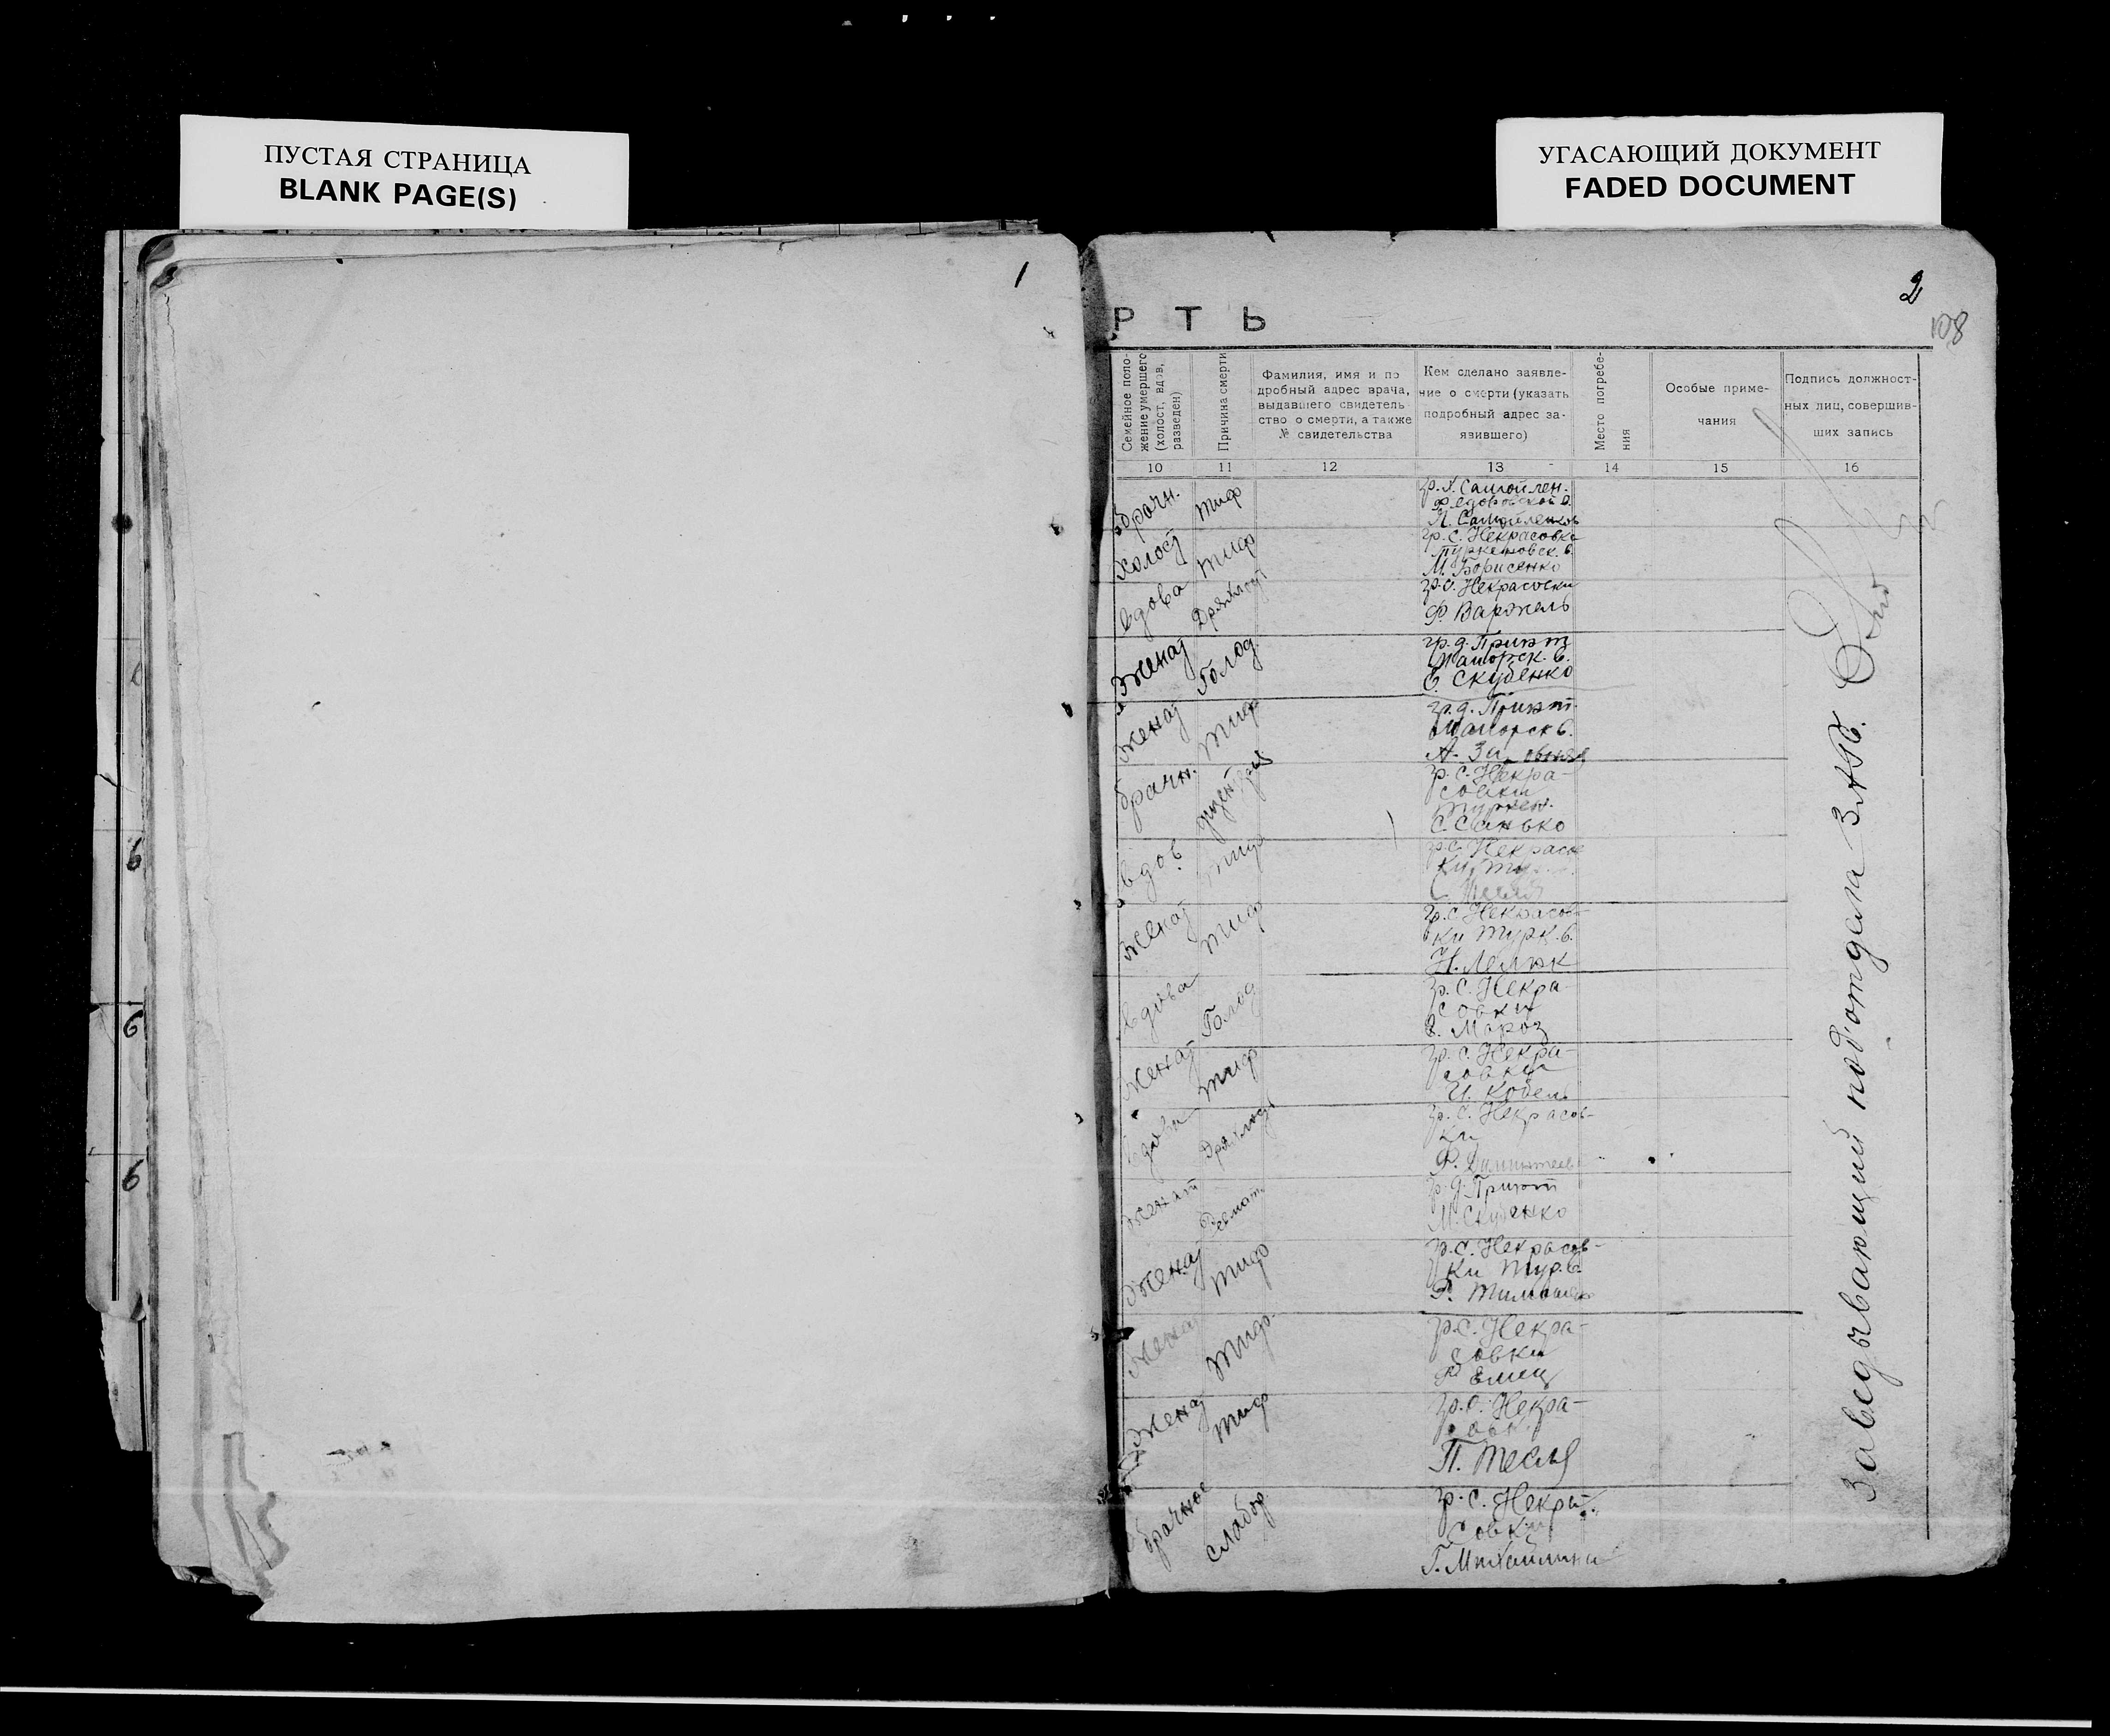 ПУСТАЯ СТРАНИЦА
BLANK PAGE(S)
УГАСАЮЩИЙ ДОКУМЕНТ
FADED DOCUMENT
1
2
108
Р Т Ь
Семейное поло-
жение умершего
(холост, вдов,
разведен)
Причина смерти
Фамилия, имя и по
дробный адрес врача,
выдавшего свидетель-
ство о смерти, а также
№ свидетельства
Кем сделано заявле-
ние о смерти (указать
подробный адрес за-
явившего)
Место погребе-
ния
Особые приме-
чания
Подпись должност-
ных лиц, совершив-
ших запись
10 11 12 13 14 15 16
брачн.
тиф
гр. Х. Самойлен.
Федоровской в.
Я. Самойленков
холост
тиф
гр. с. Некрасовки
Туркеновск. в.
М. Борисенко
вдова
Дряхлост
гр. с. Некрасовки
Ф. Варжель
Женат
Голод
гр. д. Приют
Маиорск. в.
Скубенко
женат
тиф
гр. д. Приют
Маиорск в.
А.
брачн.
гр. с. Некра-
совки
Туркен.
С. Санько
вдов.
тиф
гр. с. Некрасов
ки Тур.
С.
женат
тиф
гр. с. Некрасов-
ки Турк. в.
Н. Лелюк
вдова
Голод
гр. с. Некра-
совки
Мороз
женат
тиф
гр. с. Некра-
совки
И. Кобель
вдова
Дряхлост
гр. с. Некрасов-
ки
Ф.
женат
Ревмат.
гр. д. Приют
М. Скубенко
женат
тиф
гр. с. Некрасов-
ки Тур. в.
женат
тиф.
гр. с. Некра-
совки
Емец
женат
тиф
гр. с. Некра-
совк
П. Тесля
брачное
слабор.
гр. с. Некра-
совки
Г.
Заведывающий под'отделом ЗАГС.
6
6
6